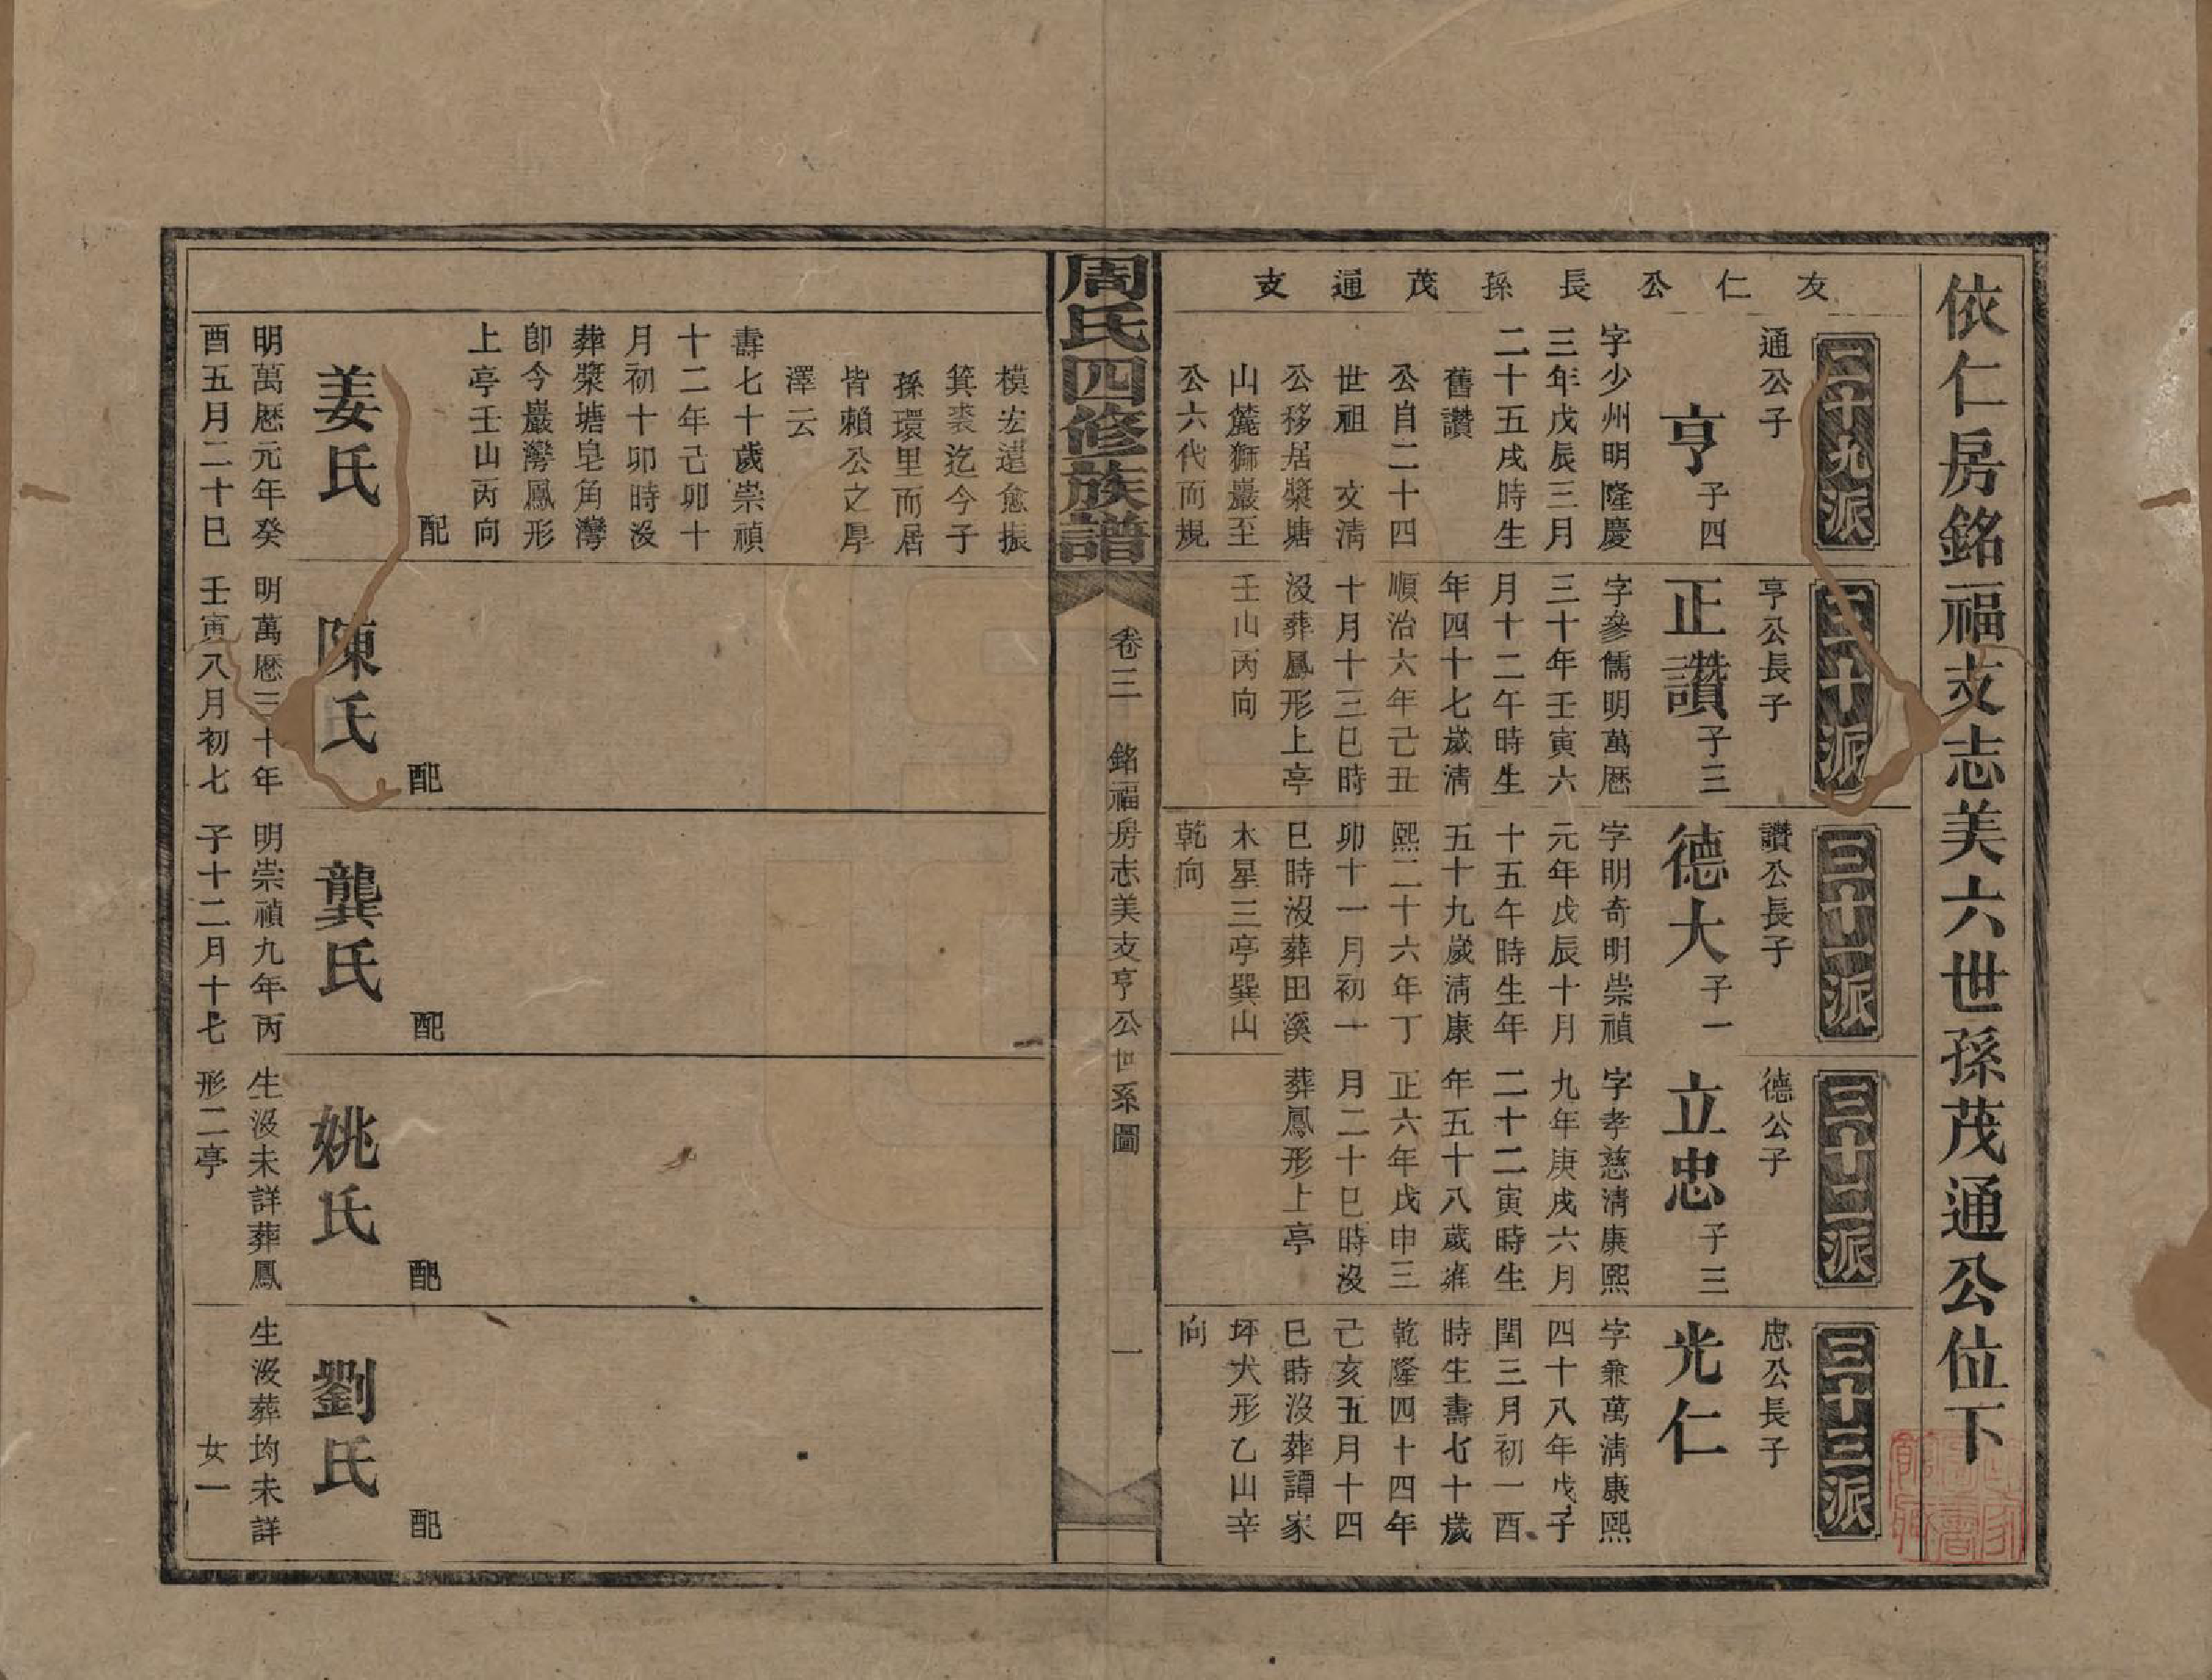 依仁房銘福支志美六世孫茂通公位下
友仁公長孫茂通支
二十九派
通公子
亨 子四
字少州明隆慶
三年戊辰三月
二十五戌時生
舊讚
公自二十四
世祖 文清
公移居漿塘
山麓獅巖至
公六代而規
模宏遠愈振
箕裘迄今子
孫環里而居
皆賴公之厚
澤云
壽七十歲崇禎
十二年己卯十
月初十卯時沒
葬漿塘皂角灣
卽今巖灣鳳形
上亭壬山丙向
配
姜氏
明萬歷元年癸
酉五月二十巳
三十派
亨公長子
正讚 子三
字參儒明萬歷
三十年壬寅六
月十二午時生
年四十七歲清
順治六年己丑
十月十三巳時
沒葬鳳形上亭
壬山丙向
配
陳氏
明萬歷三十年
壬寅八月初七
三十一派
讚公長子
德大 子一
字明奇明崇禎
元年戊辰十月
十五午時生年
五十九歲清康
熙二十六年丁
卯十一月初一
巳時沒葬田溪
木星三亭巽山
乾向
配
龔氏
明崇禎九年丙
子十二月十七
三十二派
德公子
立忠 子三
字孝慈清康熙
九年庚戌六月
二十二寅時生
年五十八歲雍
正六年戊申三
月二十巳時沒
葬鳳形上亭
配
姚氏
生沒未詳葬鳳
形二亭
三十三派
忠公長子
光仁
字兼萬清康熙
四十八年戊子
閏三月初一酉
時生壽七十歲
乾隆四十四年
己亥五月十四
巳時沒葬譚家
坪犬形乙山辛
向
配
劉氏
生沒葬均未詳
女一
周氏四修族譜
卷三 銘福房志美支亨公世系圖
一